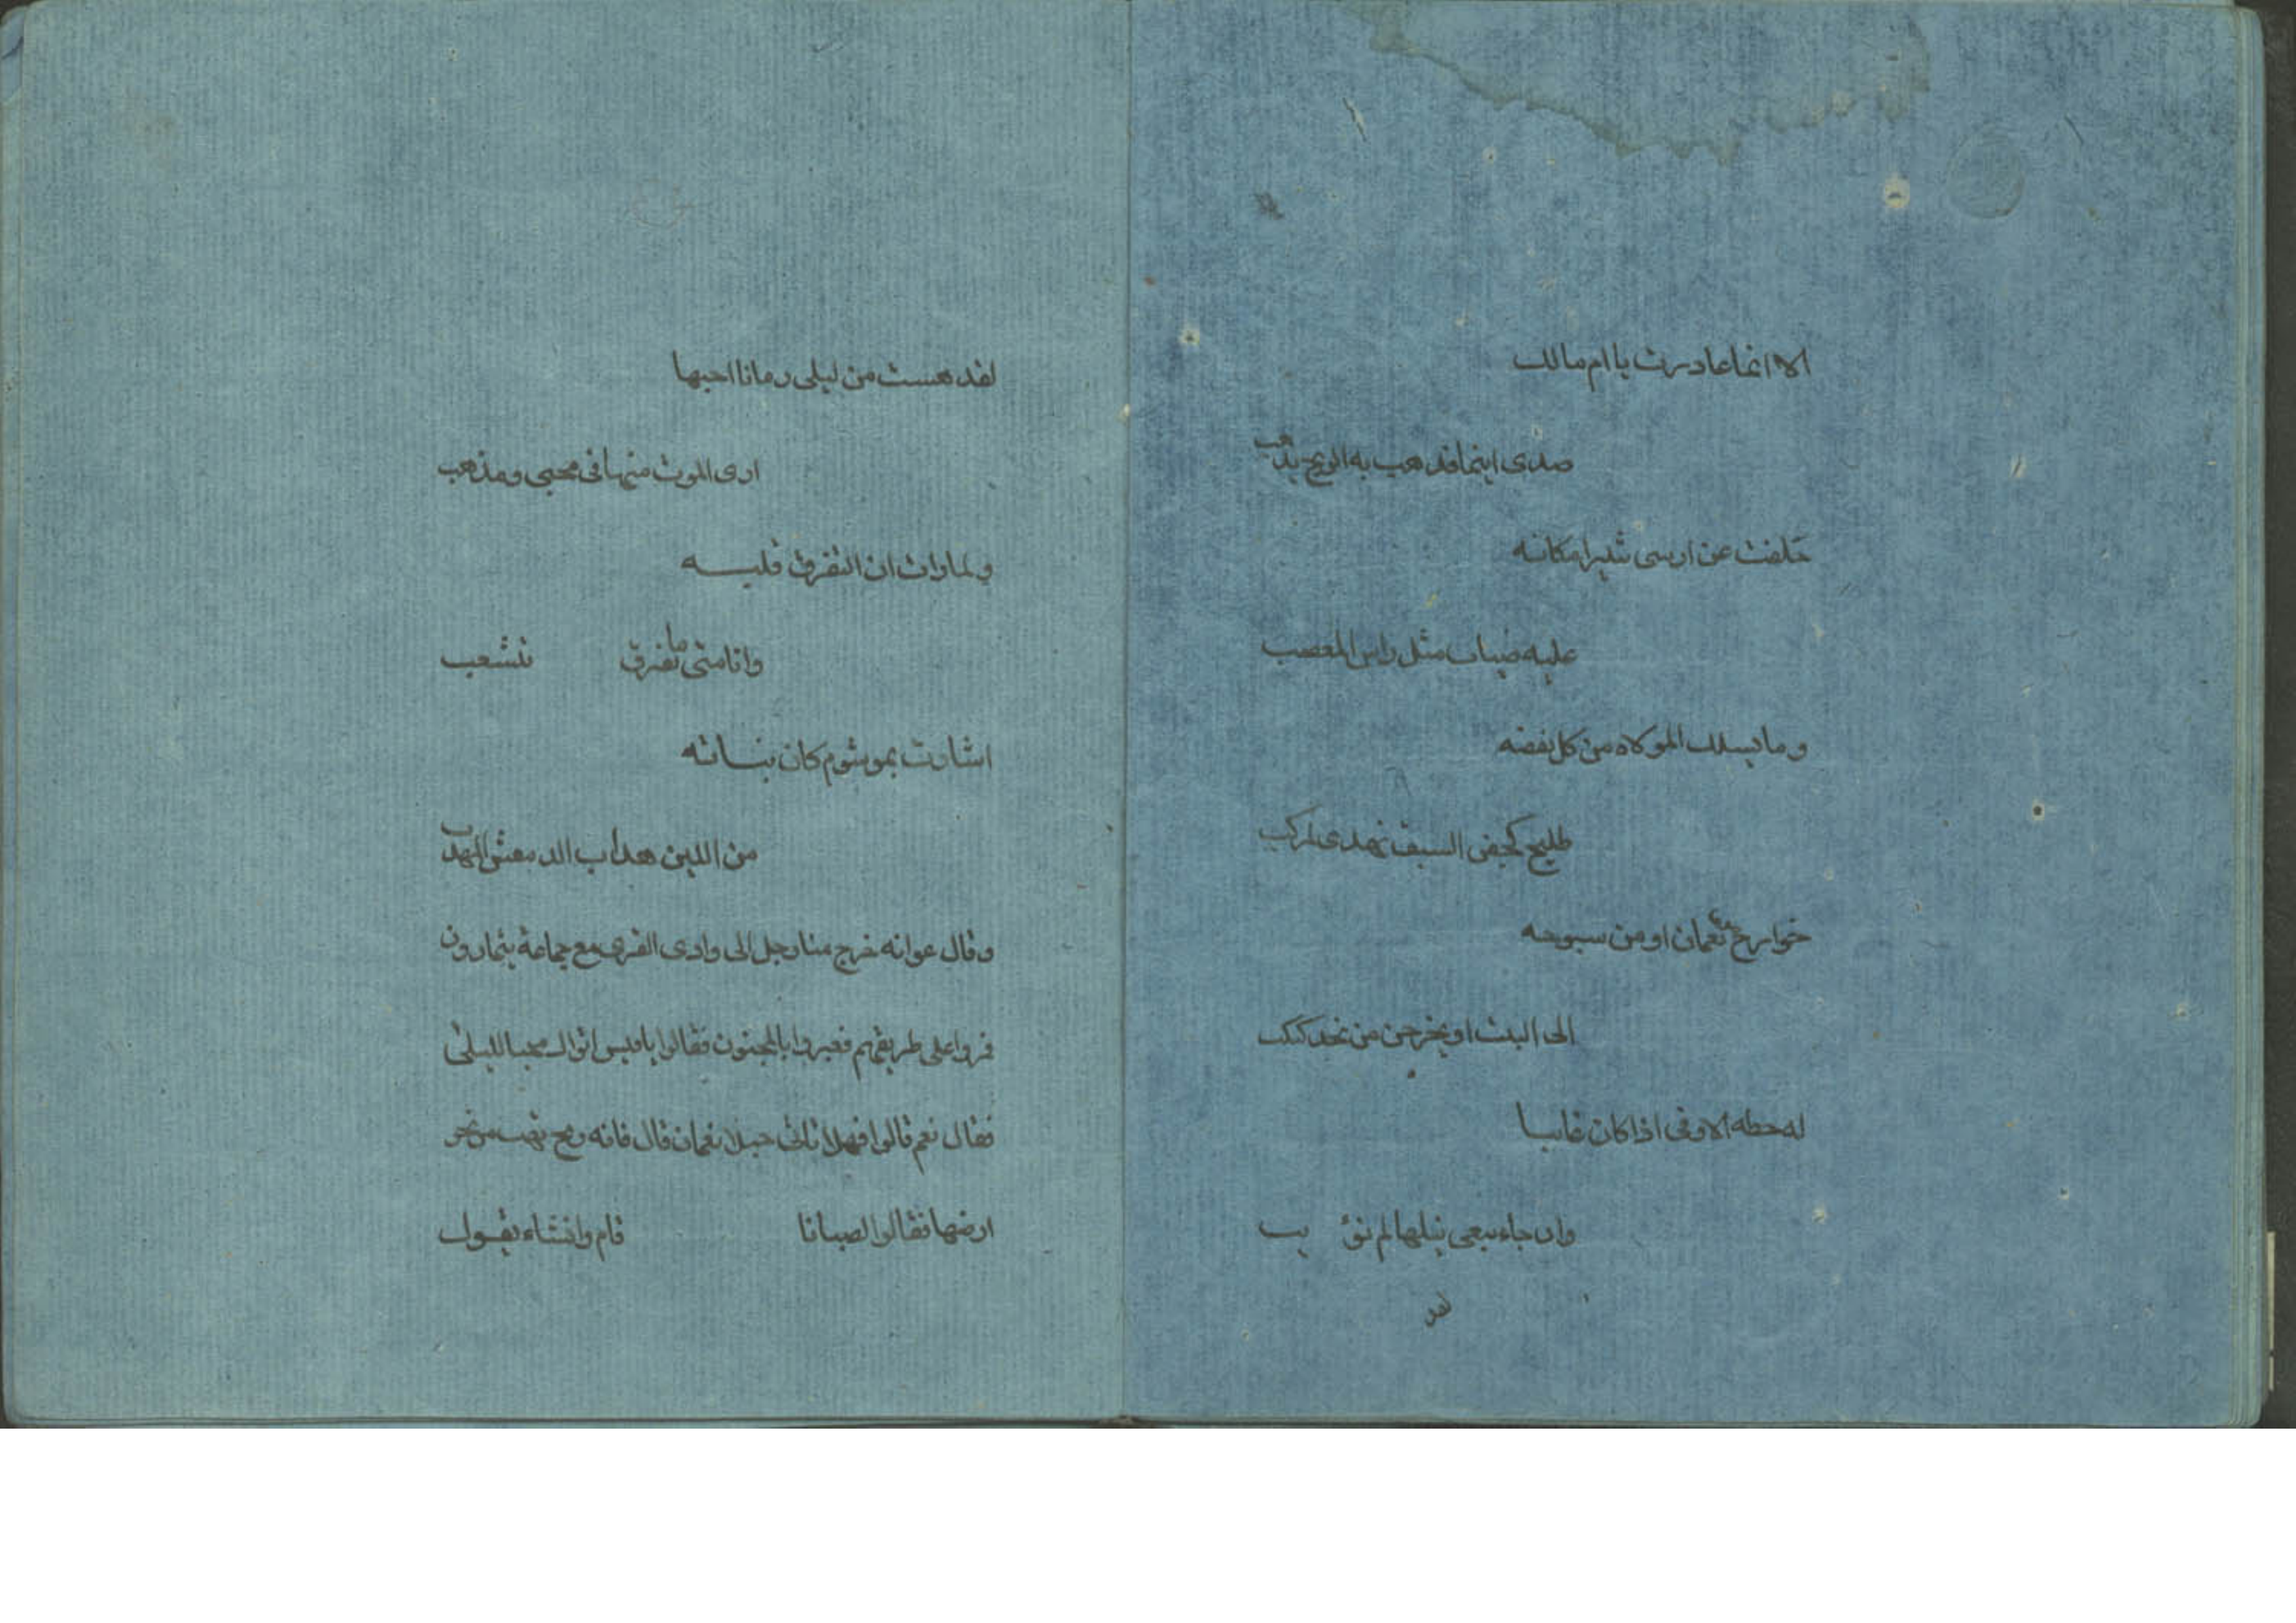 الا انما غادرت يا ام مالك
صدى اينما تذهب به الريح يذهب
حلفت عن ارسى ثبيرا مكانه
عليه ضباب مثل راس المعصب
وما يسلك الموكاه من كل نفضه
طليح كجفن السيف تهدى لمركب
خوارج من نعمان او من سبوحه
الى البيت او يخرجن من نجد كبكب
له حظه الاوفى اذا كان غايبا
وان جاء يبغى نيلها لم نؤ يب
لقد
لقد هست من ليلى زمانا احبها
ارى الموت منها فى محبى ومذهب
ولما رات ان التفرق فليـــه
وانا متى ما نفرق نتشعب
اشارت بموشوم كان بنـــانه
من اللين هداب الدمقس المهدب
وقال عوانه خرج منا رجل الى وادى القرى مع جماعة يتمارون
فروا على طريقهم فعبروا بالمجنون فقالوا يا قيس اتراك محبا لليلى
فقال نعم قالوا فهلا تاتى جبلا نعمان قال فانه ريح تهب من نحو
ارضها فقالوا الصبا فا قام وانشاء يقـول